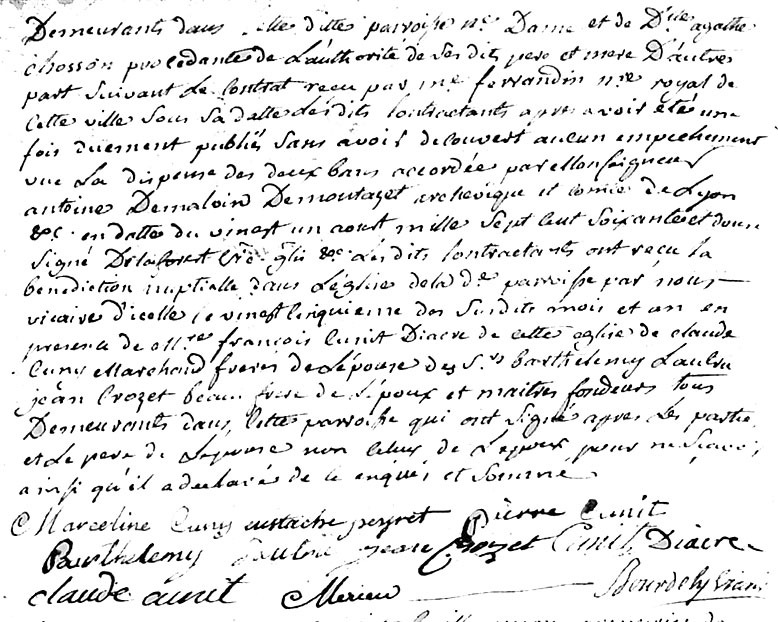 Demeurants dans cette ditte parroisse nre Dame et de Dlle agathe
chosson procedante de L'authorité de ses dits pere et mere D'autres
part suivant Le Contrat recu par me ferrandin nre royal de
Cette ville sous sa datte Lesdits Contractants apres avoir été une
fois duement publiés sans avoir decouvert aucun empechement
vue La dispense des deux bans accordée par Monseigneur
antoine Demalvin Demontazet archevêque et comte de Lyon
&c. en datte du vinest un aoust mille sept Cent soixante et douze
signé &c Lesdits Contractants ont recu la
benediction nuptialle dans L'église de la de parroisse par nous
vicaire d'icelle ce vinest Cinquieme des susdits mois et an en
presence de Mre françois Cunit Diacre de cette eglise de claude
Cuny Marchand freres de L'épouse des Srs barthelemy Laulie
jean Crozet beau frere de L'époux et maitres fondeurs tous
Demeurants dans Cette parroisse qui ont signé apres Les partie
et Le pere de L'epouse non Celuy de L'epoux pour ne sçavoir
ainsi qu'il a declaré de ce enquis et sommé
Marceline Cuny eustache peyret pierre Cunit
Barthelemy jean Crozet Cunit Diacre
claude cunit Merieu Bourdely